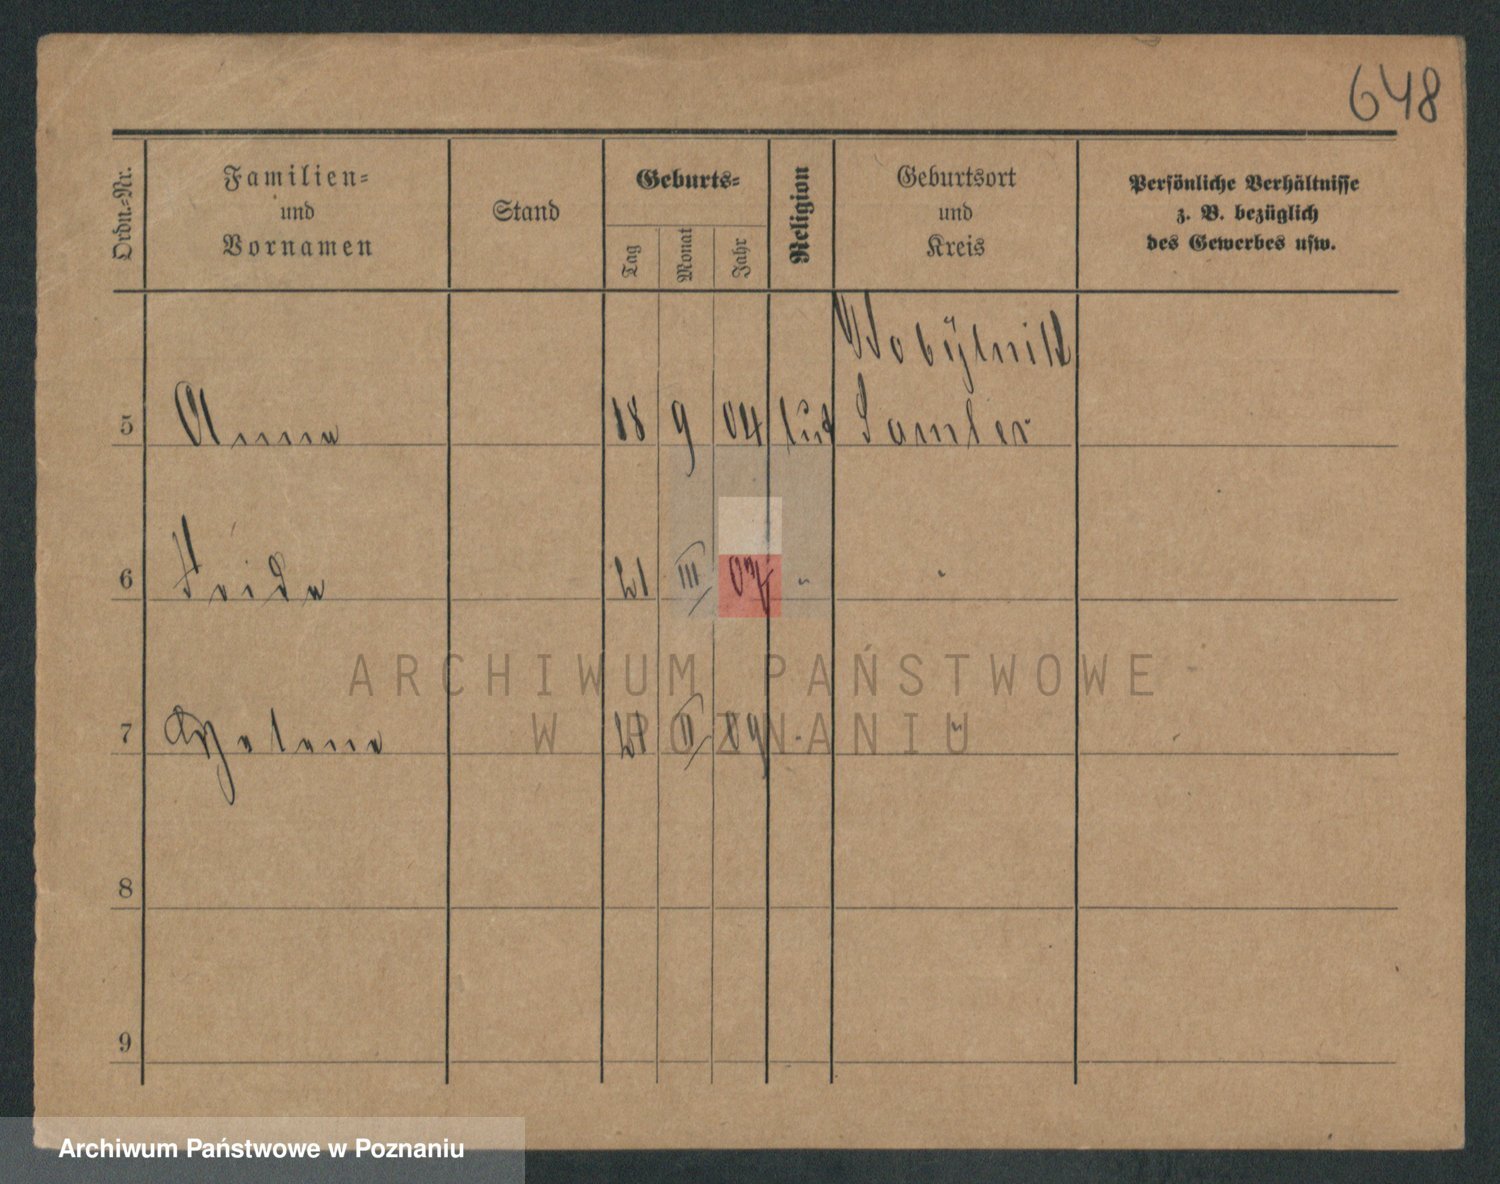 648
Ordn.-Nr.
Familien-
und
Vornamen
Stand
Geburts-
Tag
Monat
Jahr
Religion
Geburtsort
und
Kreis
Persönliche Verhältnisse
z. B. bezüglich
des Gewerbes usw.
5 Anna 18 9 04 Samter
6 Frida 21 III 07 "
7 Helene 21 II 09 " "
8
9
ARCHIWUM PAŃSTWOWE
W POZNANIU
Archiwum Państwowe w Poznaniu